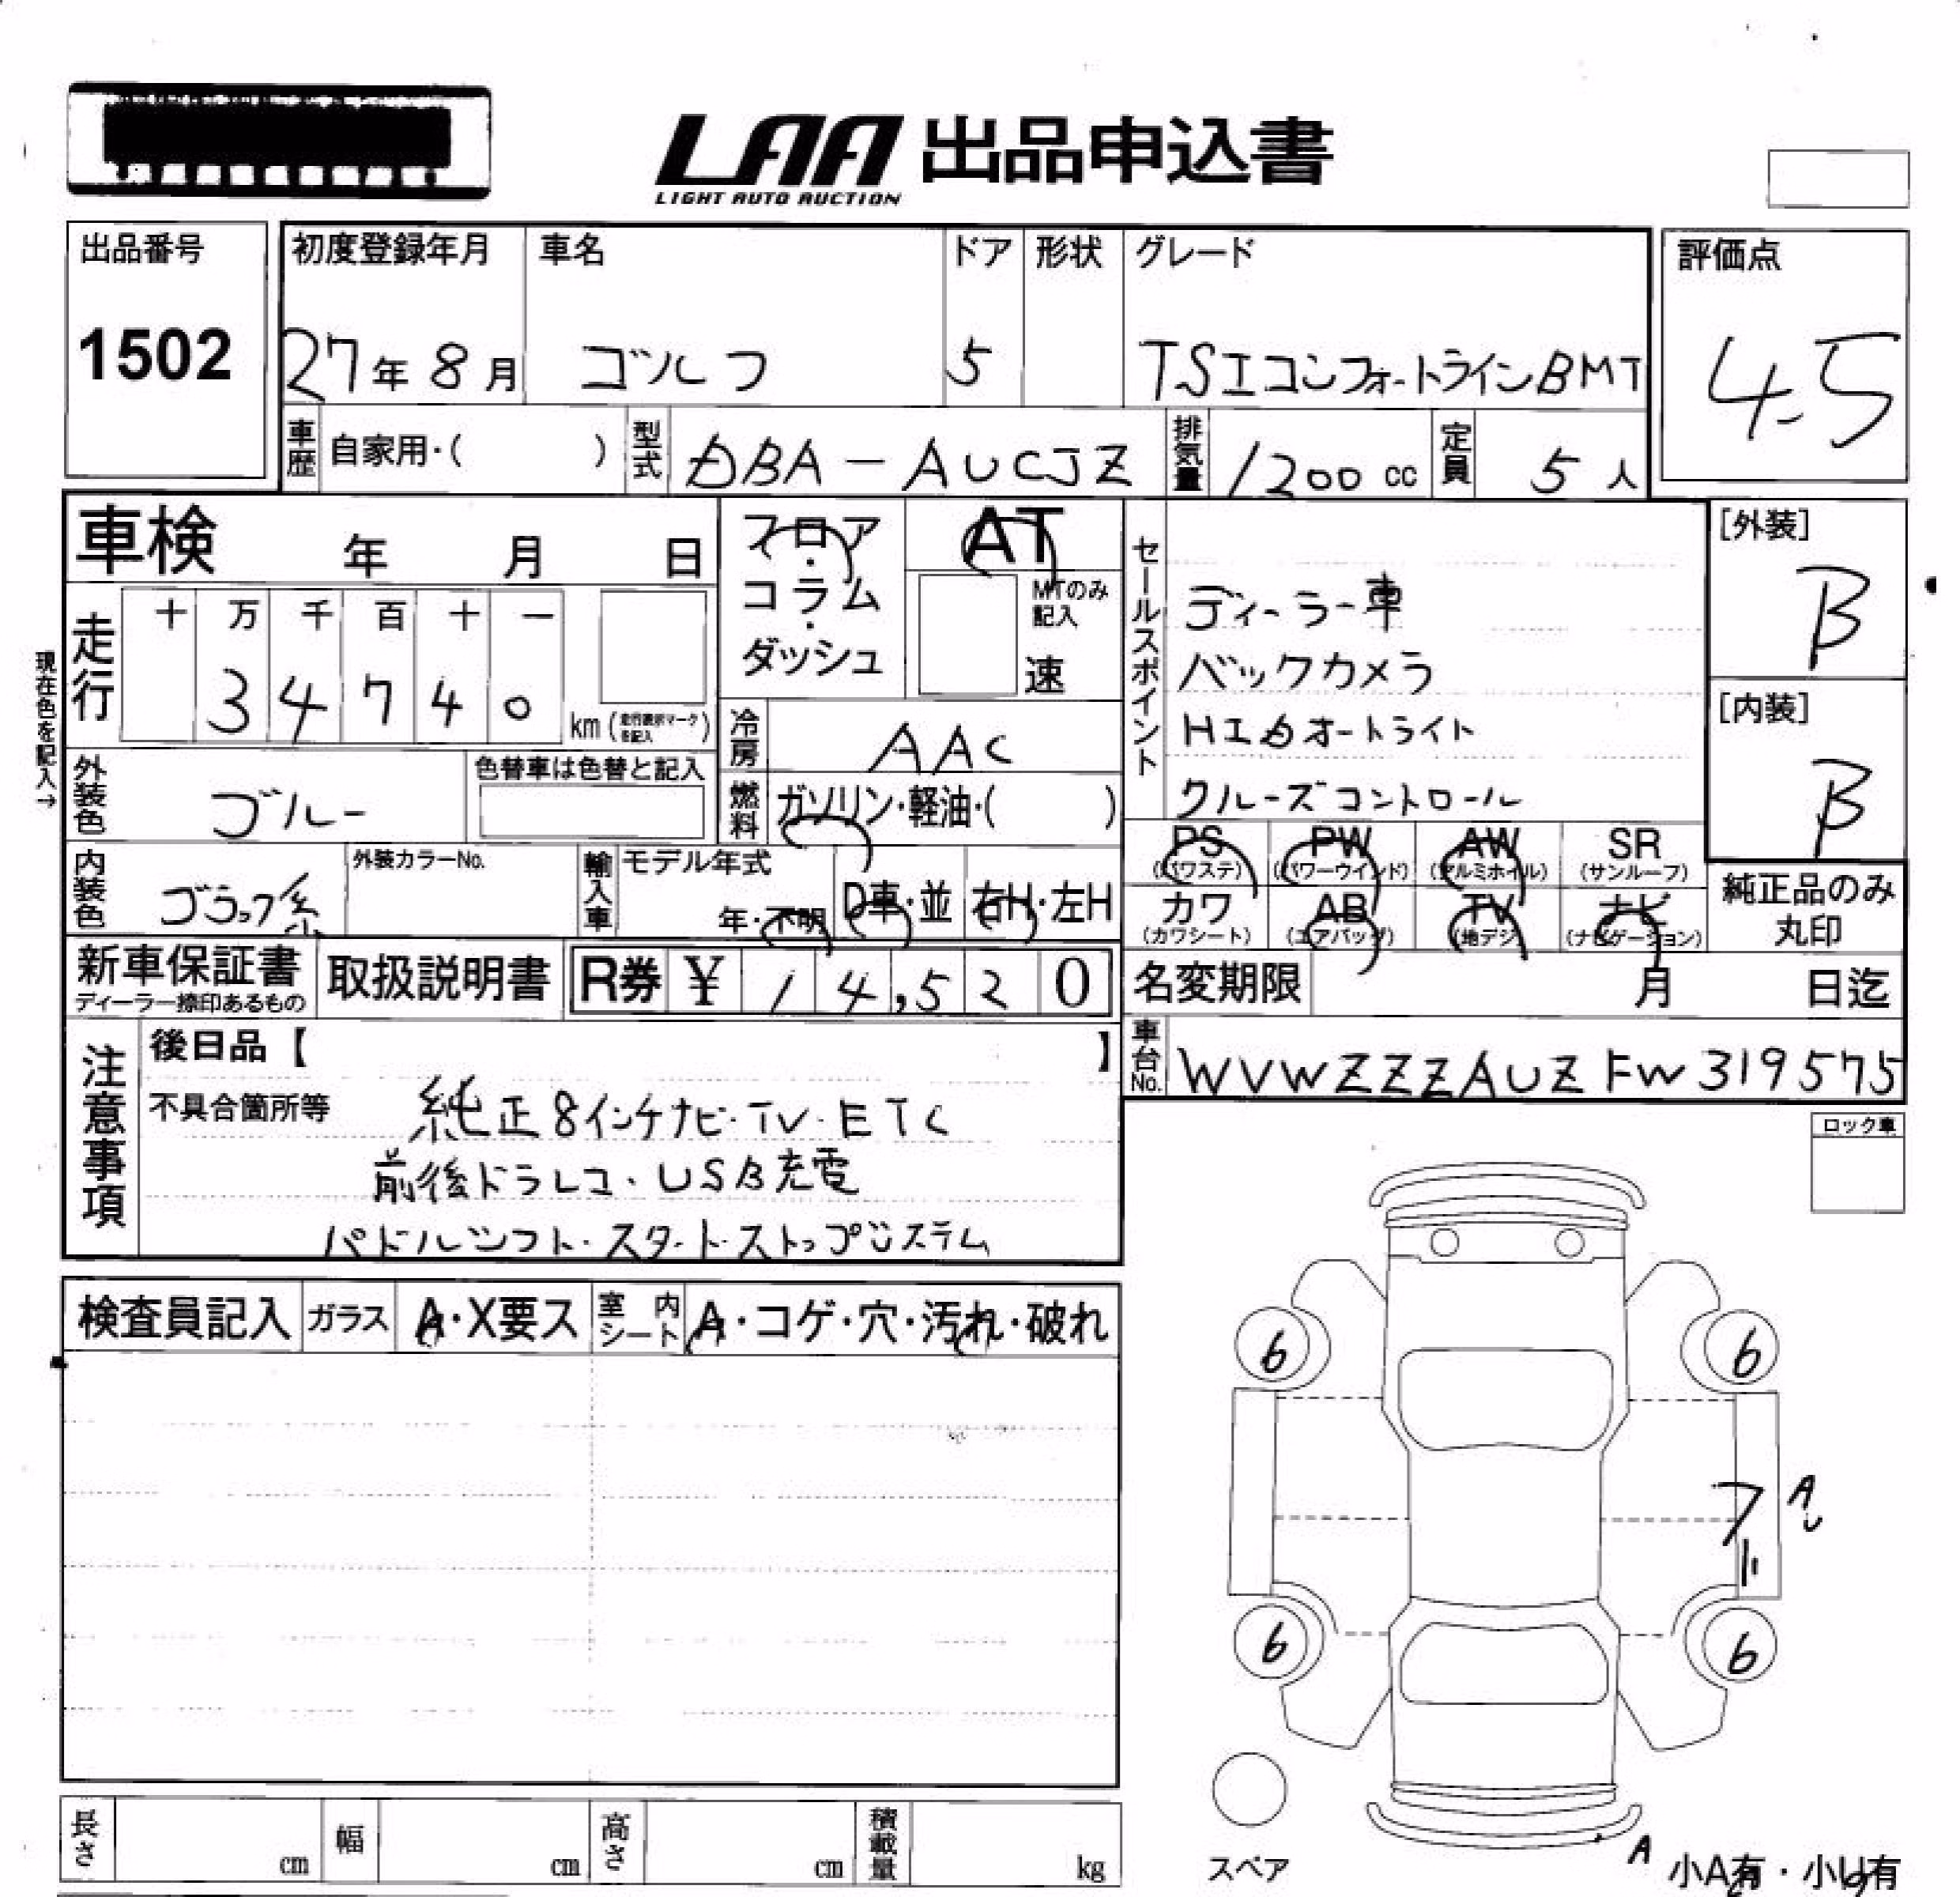 LAA 出品申込書
LIGHT AUTO AUCTION
出品番号
1502
初度登録年月
27年 8月
車名
ゴルフ
ドア
5
形状
グレード
TSIコンフォートラインBMT
評価点
4.5
車歴
自家用・( )
型式
DBA-AUCJZ
排気量
1200 cc
定員
5 人
車検 年 月 日
フロア・コラム・ダッシュ
AT
MTのみ記入
速
セールスポイント
ディーラー車
バックカメラ
HIDオートライト
クルーズコントロール
[外装]
B
[内装]
B
現在色を記入→
走行
十 万 千 百 十 一
3 4 7 4 0
km (走行表示マークを記入)
冷房
AAC
外装色
ブルー
色替車は色替と記入
燃料
ガソリン・軽油・( )
内装色
ブラック系
外装カラーNo.
輸入車
モデル年式
年・不明
D車・並
右H・左H
PS (パワステ)
PW (パワーウインド)
AW (アルミホイル)
SR (サンルーフ)
カワ (カワシート)
AB (エアバッグ)
TV (地デジ)
ナビ (ナビゲーション)
純正品のみ丸印
新車保証書
ディーラー捺印あるもの
取扱説明書
R券 ¥ 1 4,5 2 0
名変期限 月 日迄
車台No.
WVWZZZAUZFW319575
注意事項
後日品【 】
不具合箇所等
純正8インチナビ・TV・ETC
前後ドラレコ・USB充電
パドルシフト・スタートストップシステム
ロック車
検査員記入
ガラス
A・X要ス
室内シート
A・コゲ・穴・汚れ・破れ
6
6
A
フ
6
6
スペア
A
小A有・小U有
長さ cm
幅 cm
高さ cm
積載量 kg